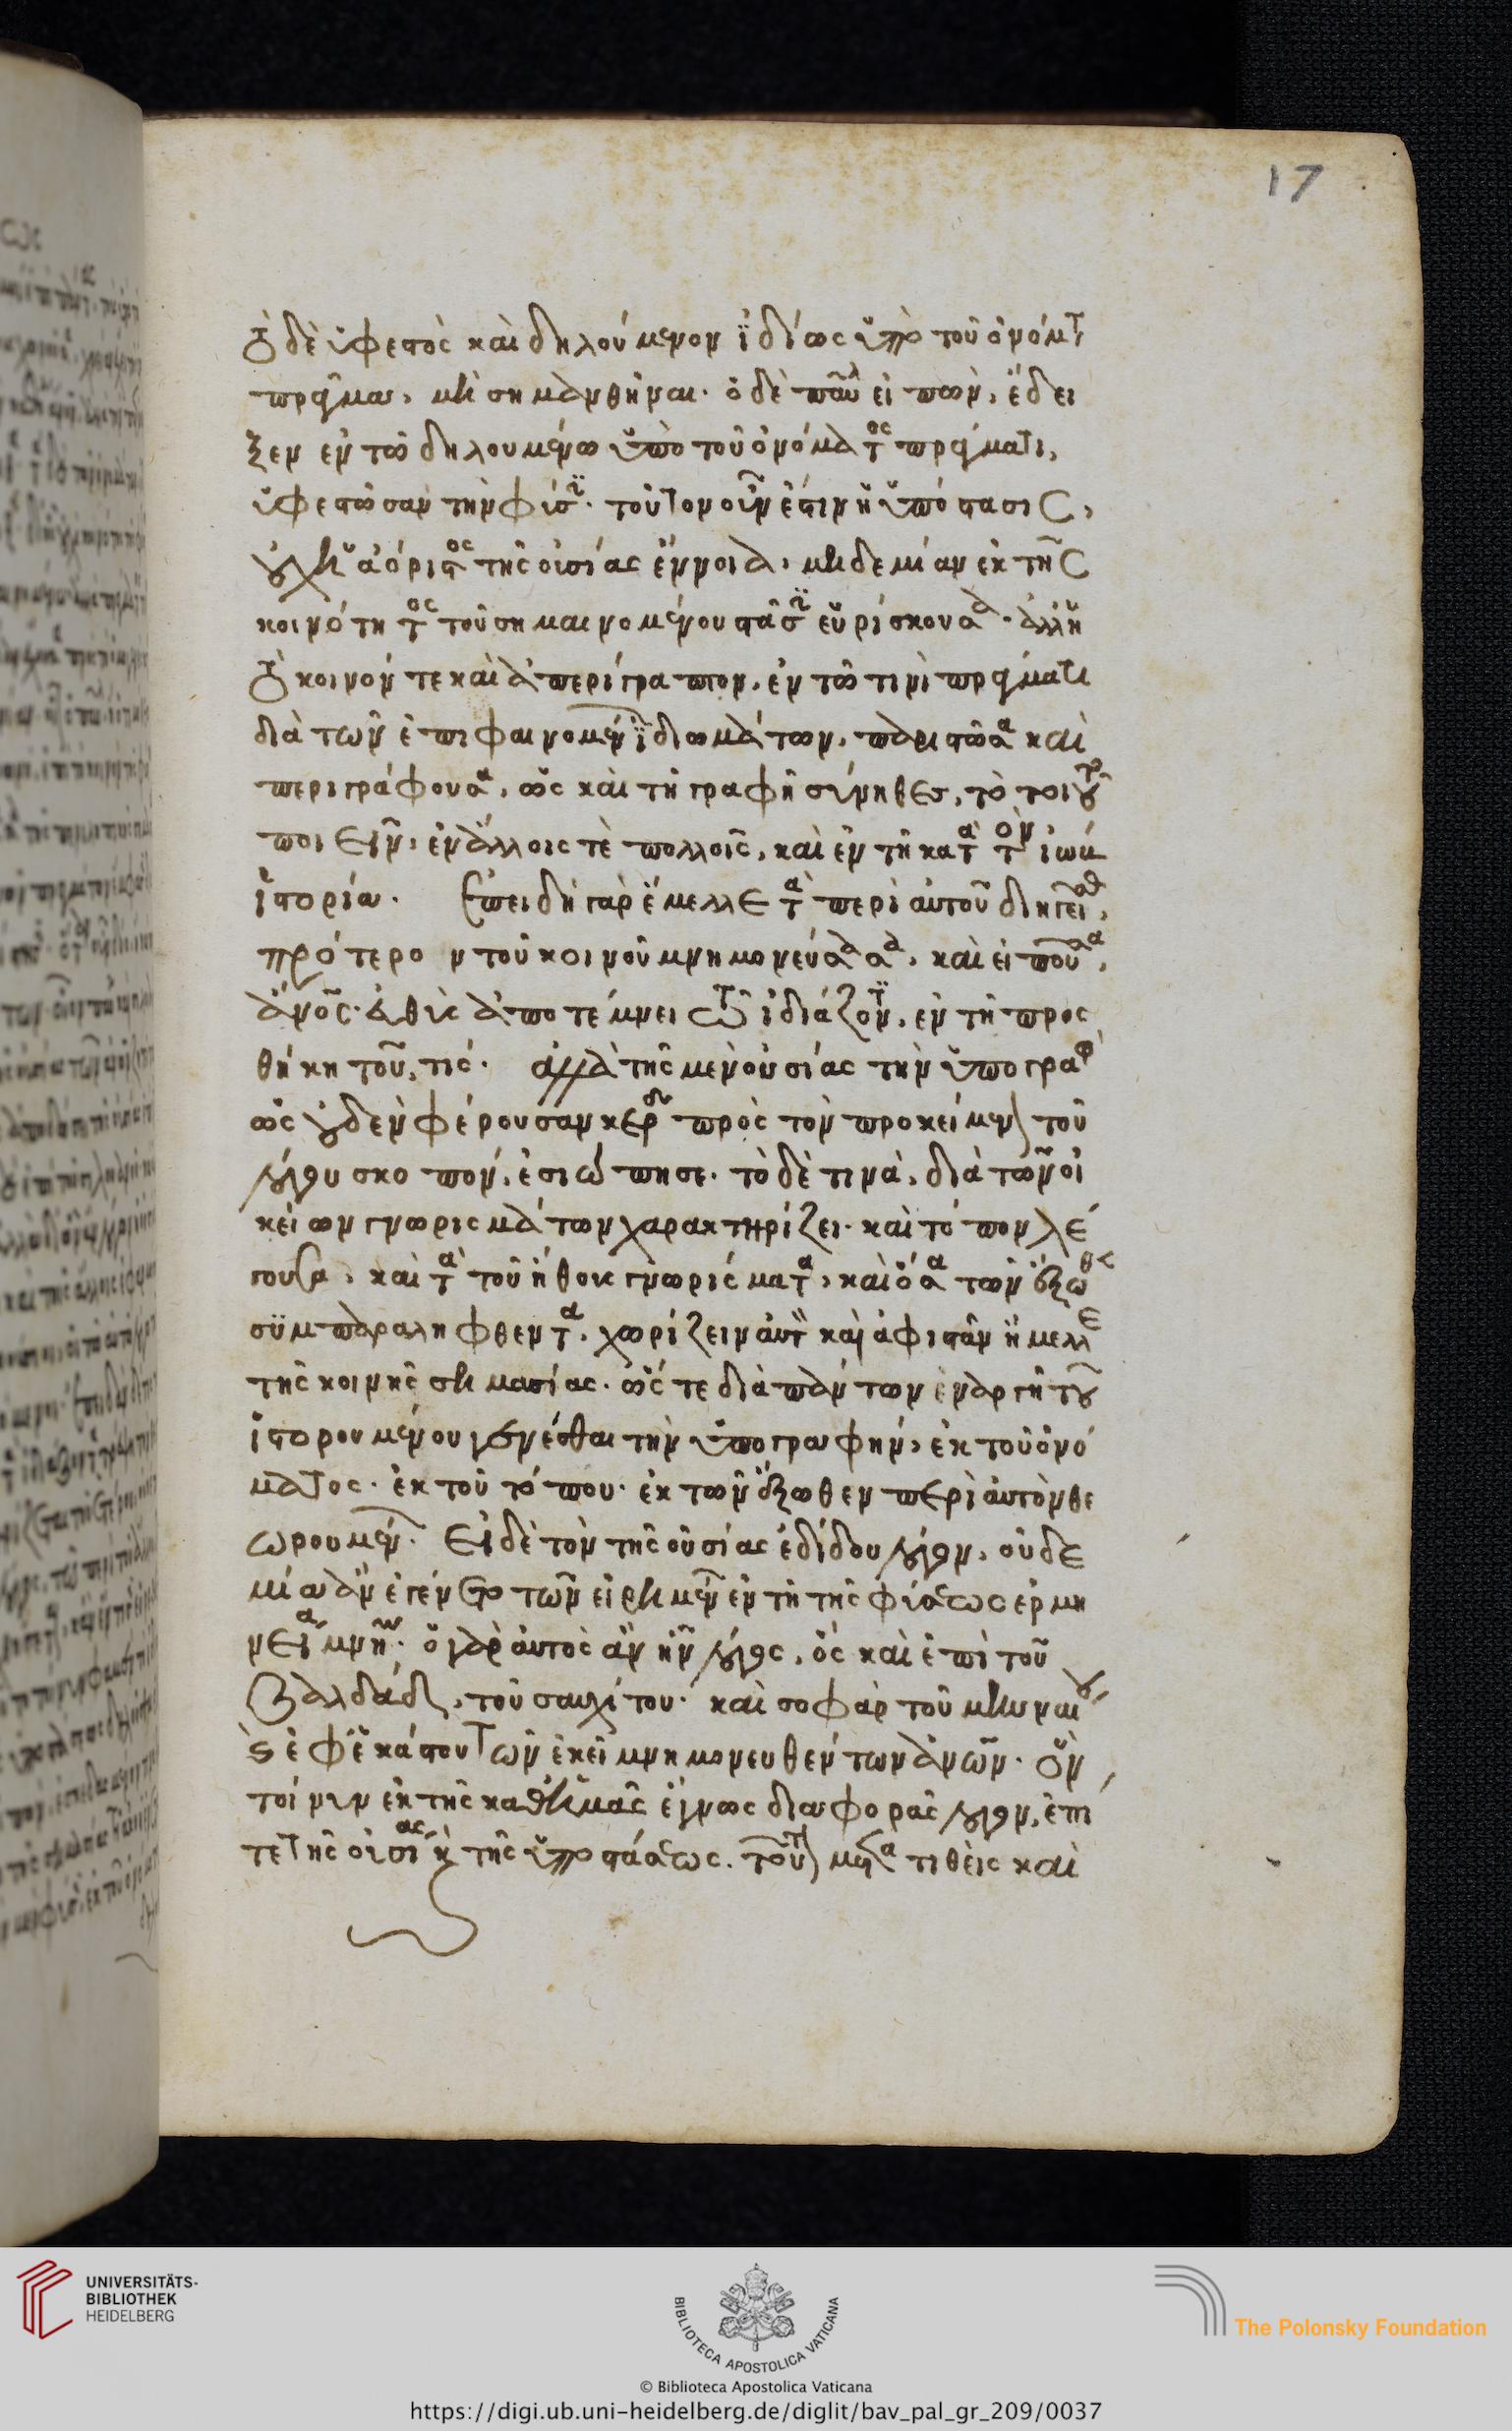 τὸ δὲ ὑφεστὸς καὶ δηλούμενον ἰδίως ὑπὸ τοῦ ὀνόματος
πρᾶγμα, μὴ σημανθῆναι. ὁ δὲ παῦλον εἰπὼν, ἔδει
ξεν ἐν τῶ δηλουμένω ὑπὸ τοῦ ὀνόματος πράγματι,
ὑφεστῶσαν τὴν φύσιν. τοῦτο νοῦν ἐστιν ἡ ὑπόστασις,
οὐχ ἡ ἀόριστος τῆς οὐσίας ἔννοια, μηδεμίαν ἐκ τῆς
κοινότητος τοῦ σημαινομένου στάσιν εὑρίσκουσα. ἀλλ' ἡ
τὸ κοινόν τε καὶ ἀπερίγραπτον, ἐν τῶ τινὶ πράγματι
διὰ τῶν ἐπιφαινομένων ἰδιωμάτων, παριστῶσα καὶ
περιγράφουσα, ὡς καὶ τῆ γραφῆ σύνηθες, τὸ τοιοῦτο
ποιεῖν, ἐν ἄλλοις τὲ πολλοῖς, καὶ ἐν τῆ κατὰ τὸν ἰὼβ
ἱστορία. Ἐπειδὴ γὰρ ἔμελλε τὰ περὶ αὐτοῦ διηγεῖσθαι,
πρότερον τοῦ κοινοῦ μνημονεύσασα, καὶ εἰποῦσα,
ἄνος. εὐθὺς ἀποτέμνει τῶ ἰδιάζοντι, ἐν τῆ προς
θήκη τοῦ, τις. ἀλλὰ τῆς μὲν οὐσίας τὴν ὑπογραφὴν
ὡς οὐδὲν φέρουσαν κέρδος πρὸς τὸν προκείμενον τοῦ
λόγου σκοπὸν, ἐσιώπησε. τὸ δὲ τινὰ, διὰ τῶν οἰ
κείων γνωρισμάτων χαρακτηρίζει. καὶ τόπον λέ
γουσα, καὶ τὰ τοῦ ἤθους γνωρίσματα, καὶ ὅσα τῶν ἔξωθεν
συμπαραληφθέντα, χωρίζειν αὐτὸν καὶ ἀφιστᾶν ἤμελλε
τῆς κοινῆς σημασίας. ὥς τε διὰ πάντων ἐναργῆ τοῦ
ἱστορουμένου γενέσθαι τὴν ὑπογραφὴν, ἐκ τοῦ ὀνό
ματος. ἐκ τοῦ τόπου. ἐκ τῶν ἔξωθεν περὶ αὐτὸν θε
ωρουμένων. Εἰ δὲ τὸν τῆς οὐσίας ἐδίδου λόγον, οὐδε
μία ἂν ἐγένετο τῶν εἰρημένων ἐν τῆ τῆς φύσεως ἑρμη
νεία μνήμη. ὁ γὰρ αὐτὸς ἂν ἦν λόγος, ὃς καὶ ἐπὶ τοῦ
βαλδάδ, τοῦ σαυχίτου. καὶ σοφὰρ τοῦ μηναίου
καὶ ἐφ' ἑκάστου τῶν ἐκεῖ μνημονευθέντων ἀνων. ὃν
τοίνυν ἐν τῆς καθ' ἡμᾶς ἔγνως διαφορᾶς λόγον, ἐπί
τε τῆς οὐσίας καὶ τῆς ὑποστάσεως. τοῦτον μετατιθεὶς καὶ
17
UNIVERSITÄTS-
BIBLIOTHEK
HEIDELBERG
BIBLIOTECA APOSTOLICA VATICANA
The Polonsky Foundation
© Biblioteca Apostolica Vaticana
https://digi.ub.uni-heidelberg.de/diglit/bav_pal_gr_209/0037